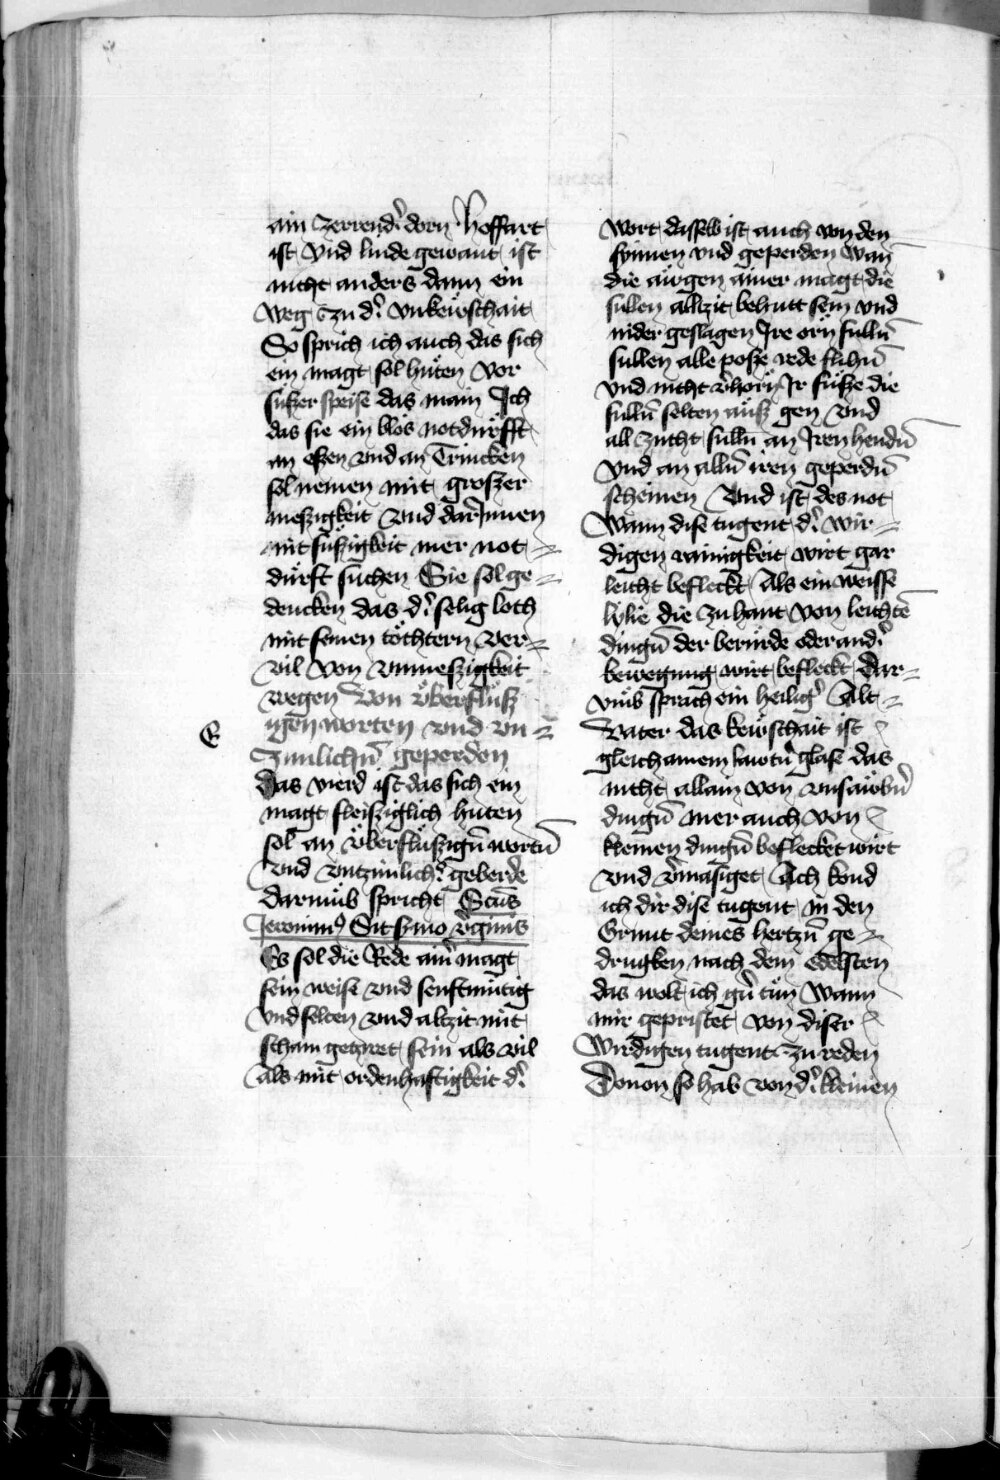 ain zerrend' dorn Hoffart
ist Vnd linde gewant ist
nicht anders dann ein
weg zu d' vnkewschait
So sprich ich auch das sich
ein magt sol hüten vor
süszer speise das main Ich
das sie ein blos notdürfft
an eszen vnd an Trincken
sol nemen mit groszer
meszigkeit Vnd darJnnen
nit süszigkeit mer not=
dürft suchen Sie sol ge=
dencken das d' selig loth
mit seinen töchtern ver=
vil von vnmeszigkeit
wegen Von v̈berflüsz
igen worten vnd vn=
zimlichn̄ geperden
E
das vierd ist das sich ein
magt fleisziglich hüten
sol an v̈berflüszign̄ wortn̄
Vnd vntzimlich' geberde
darumb spricht Scus̄
Jeronim⁹ Sit sermo v'ginis
Es sol die Rede ain' magt
sein weise vnd senftmütig
vnd selten vnd altzit mit
scham getziret sein als vil
als mit ordenhaftigkeit d'
wort dasselb ist auch von den
synnen vnd geperden Wan̄
die augen ainer magt die
sullen alltzit behutt sein vnd
nider geslagen Jre orn sulln̄
sullen alle posze rede flihn̄
vnd nicht v'horn Jr füsze die
sulln̄ selten ausz gen Vnd
all zucht sulln̄ an Jren hendn̄
Vnd an alln̄ iren geperdn̄
scheinen Vnd ist des not
Wann dise tugent d' wir=
digen rainigkeit wirt gar
leicht befleckt Als ein weisse
lylie die zu hant von leichtē
dingn̄ der berürde oder and'
bewegung wirt befleckt dar=
vmb sprach ein heilig' Alt=
Vater das kewschait ist
gleich ainem lawtn̄ glase das
nicht allain von vnsawbn̄
dingn̄ mer auch von
kleinen dingn̄ beflecket wirt
vnd v'masiget Ach kond
ich dir dise tugent in den
Grunt deines hertzn̄ ge=
drugken nach dem edelsten
das wolt ich gn̄ tün Wann
mir gepristet von diser
Wirdigen tugent zu reden
Douon so hab von d' kleinen